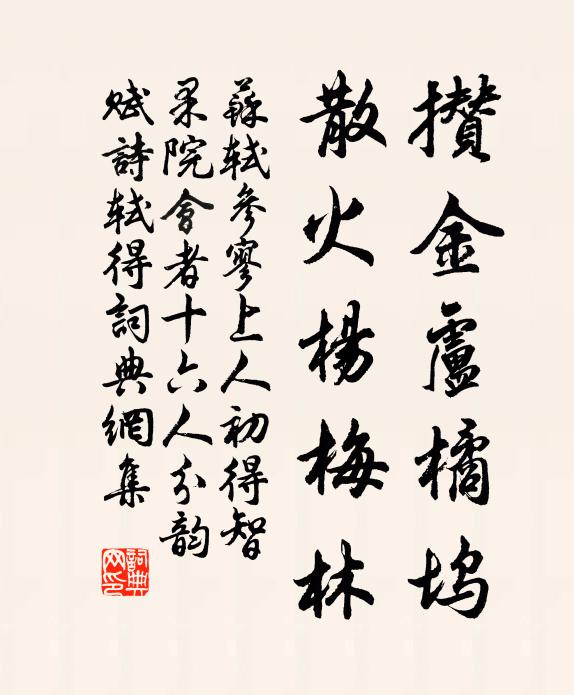 攢金盧橘塢
散火楊梅林
蘇軾參寥上人初得智
果院會者十六人分韵
賦詩軾得詞典網集
詞典網印